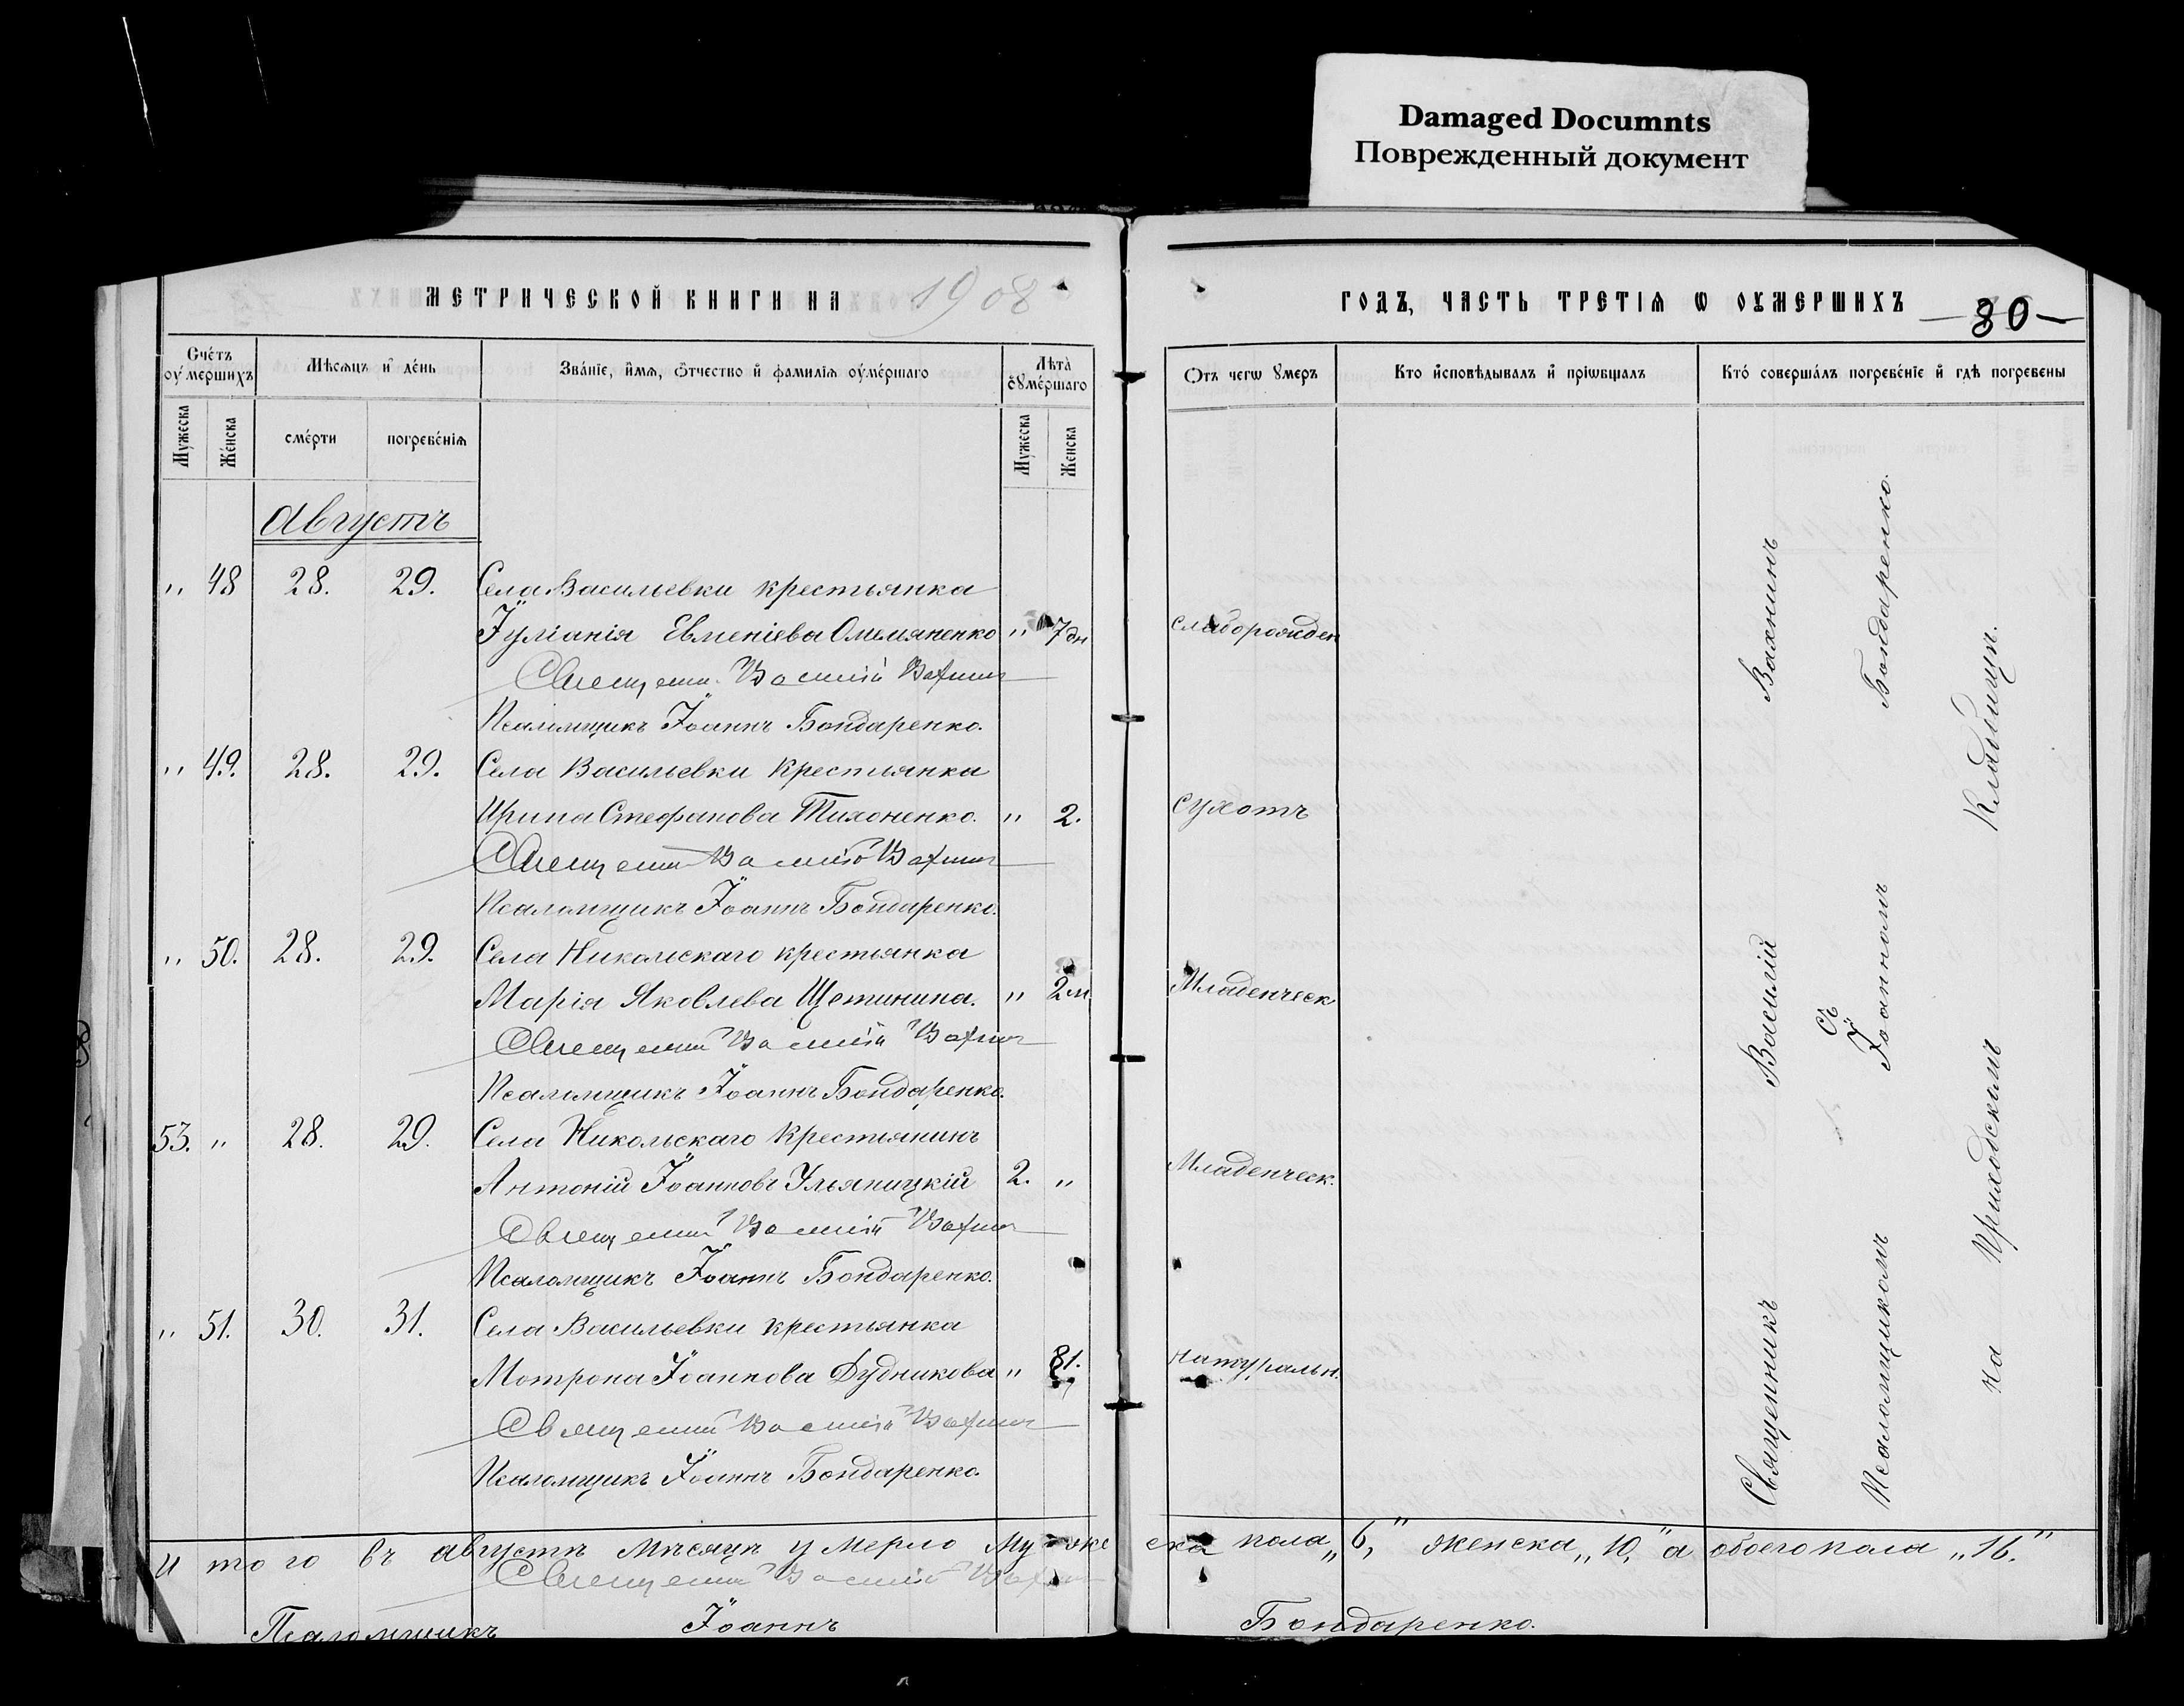 Damaged Documnts
Поврежденный документ
МЕТРИЧЕСКОЙ КНИГИ НА 1908
ГОДЪ, ЧАСТЬ ТРЕТІѦ Ѡ ОУМЕРШИХЪ
80
Счетъ оумершихъ
Мужеска
Женска
Мѣсѧцъ и день
смерти
погребеніѧ
Званіе, имѧ, отчество и фамиліѧ оумершаго
Лѣта оумершаго
Мужеска
Женска
Отъ чегѡ умеръ
Кто исповѣдывалъ и пріѡбщалъ
Кто совершалъ погребеніе и гдѣ погребены
Августъ
" 48 28. 29. Села Васильевки крестьянка
Іуліанія Евменіева Омемяненко " 7 дн слаборожден
Священ. Василій Вахнин
Псаломщикъ Іоаннъ Бондаренко.
" 49. 28. 29. Села Васильевки крестьянка
Ирина Стефанова Тихоненко. " 2. сухотъ
Священ Василій Вахнин
Псаломщикъ Іоаннъ Бондаренко.
" 50. 28. 29. Села Никольскаго крестьянка
Марія Яковлева Щетинина. " 2 м Младенческ
Священ Василій Вахнин
Псаломщикъ Іоаннъ Бондаренко.
53. " 28. 29. Села Никольскаго крестьянинъ
Антоній Іоанновъ Ульяницкій 2. " Младенческ.
Священ Василій Вахнин
Псаломщикъ Іоаннъ Бондаренко.
" 51. 30. 31. Села Васильевки крестьянка
Мотрона Іоаннова Дудникова " 81. натуральн.
Священ Василій Вахнин
Псаломщикъ Іоаннъ Бондаренко.
Священникъ Василій Вахнинъ
съ
Псаломщикомъ Іоанномъ Бондаренко.
на Приходскомъ Кладбищѣ.
Итого въ августѣ мѣсяцѣ умерло мужеска пола „6," женска „10," а обоего пола „16."
Священ Василій Вахнин
Псаломщикъ Іоаннъ Бондаренко.